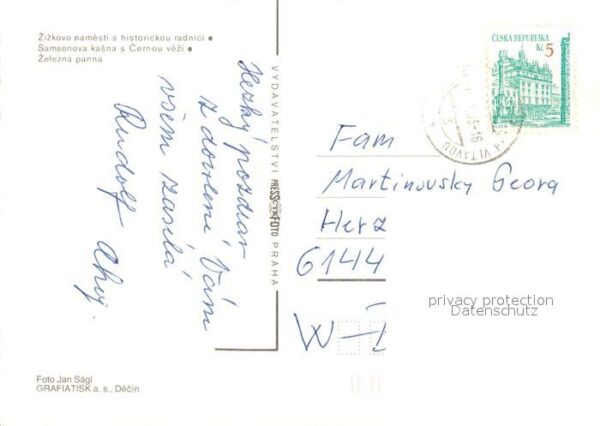 Žižkovo naměstí s historickou radnicí •
Samsonova kašna s Černou věží •
Železná panna
Hezký pozdrav
z dovolené Vám
všem zasílá
Rudolf Ahoj.
VYDAVATELSTVÍ PRESSFOTO PRAHA
ČESKÁ REPUBLIKA
Kč 5
VLTAVOU
Fam
Martinovsky Georg
Herz
6144
W-
privacy protection
Datenschutz
Foto Jan Ságl
GRAFIATISK a. s., Děčín